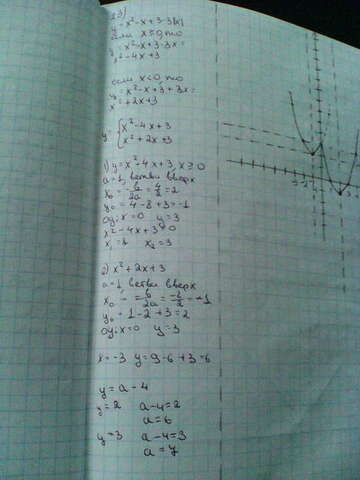 23)
y = x² - x + 3 - 3|x|
если x ≥ 0, то
y = x² - x + 3 - 3x =
x² - 4x + 3
если x < 0, то
y = x² - x + 3 + 3x =
x² + 2x + 3
y = { x² - 4x + 3
x² + 2x + 3
1) y = x² - 4x + 3, x ≥ 0
a = 1, ветви вверх
x₀ = -b/2a = 4/2 = 2
y₀ = 4 - 8 + 3 = -1
oy: x = 0 y = 3
x² - 4x + 3 = 0
x₁ = 1 x₂ = 3
2) x² + 2x + 3
a = 1, ветви вверх
x₀ = -b/2a = -2/2 = -1
y₀ = 1 - 2 + 3 = 2
oy: x = 0 y = 3
x = -3 y = 9 - 6 + 3 = 6
y = a - 4
y = 2 a - 4 = 2
a = 6
y = 3 a - 4 = 3
a = 7